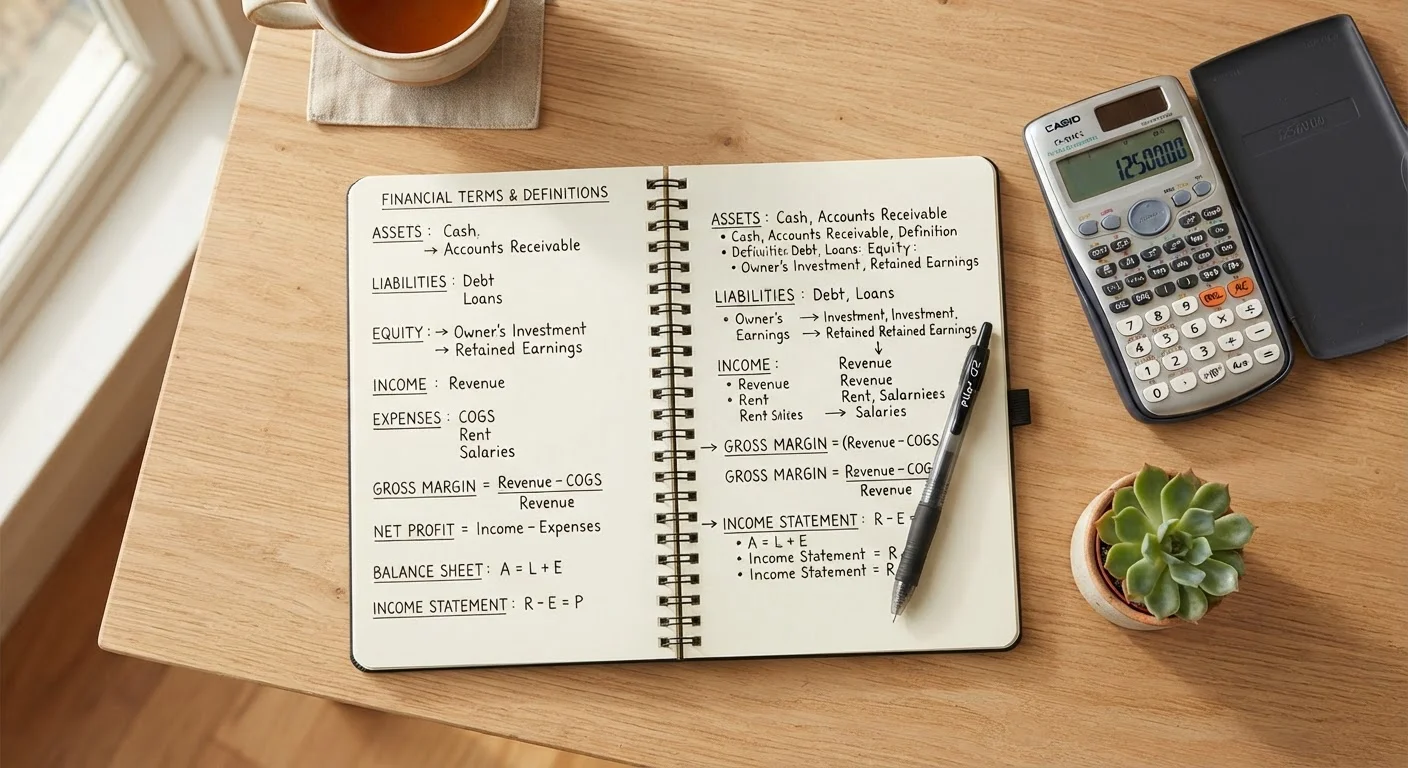 FINANCIAL TERMS & DEFINITIONS
ASSETS : Cash,
→ Accounts Receivable
LIABILITIES : Debt
Loans
EQUITY : → Owner's Investment
→ Retained Earnings
INCOME : Revenue
EXPENSES : COGS
Rent
Salaries
GROSS MARGIN = Revenue – COGS
Revenue
NET PROFIT = Income – Expenses
BALANCE SHEET : A = L + E
INCOME STATEMENT : R – E = P
ASSETS : Cash, Accounts Receivable
• Cash, Accounts Receivable, Definition
• Debt, Loans: Equity :
• Owner's Investment, Retained Earnings
LIABILITIES : Debt, Loans
• Owner's → Investment, Investment,
Earnings → Retained Retained Earnings
↓
INCOME : Revenue
• Revenue Revenue
• Rent Rent, Salarniees
Rent → Salaries
→ GROSS MARGIN = (Revenue – COGS
GROSS MARGIN = Revenue – COG
Revenue
→ INCOME STATEMENT : R – E =
• A = L + E
• Income Statement = R
• Income Statement = R
Pilot G2
CASIO
1250000
7 8 9
4 3 6 × ÷
1 2 3 + −
0 . =